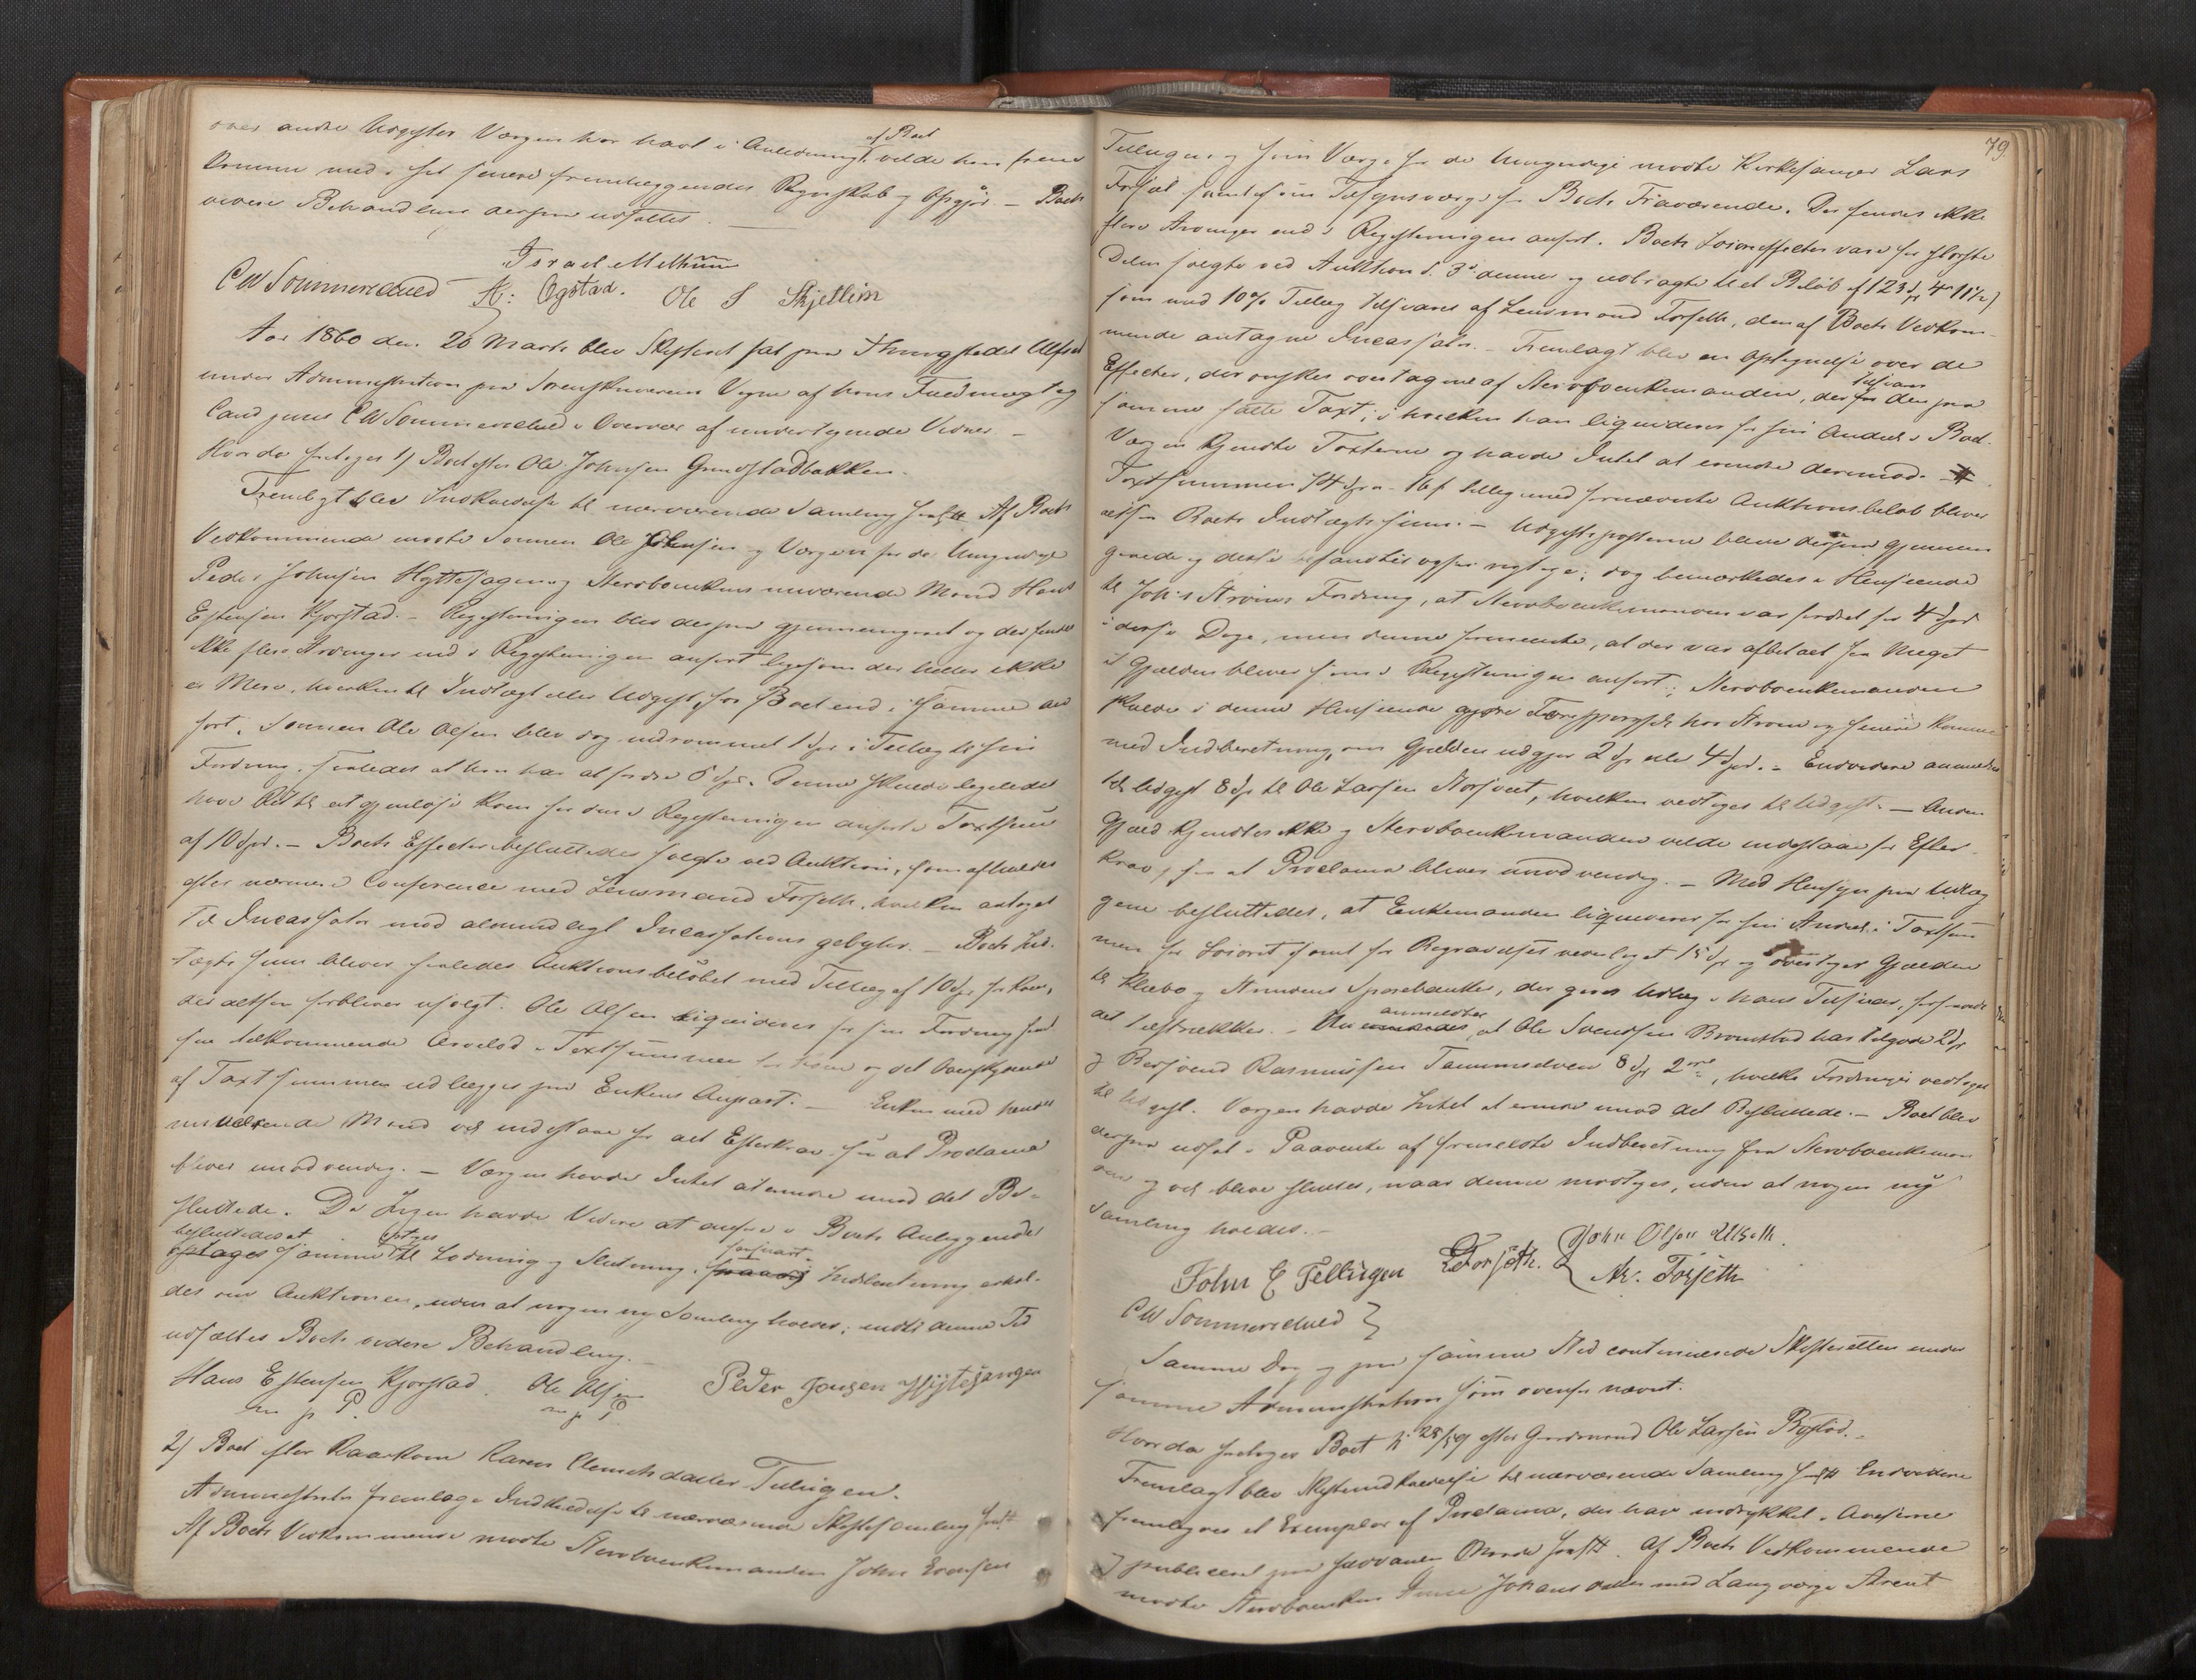 over andre Udgifter Værgen har havt i Anledning af Boet, vilde han frem
komme med i sit senere fremlæggendes Regnskab og Opgjør. — Boets
videre Behandling derpaa udsattes.
Israel Methun
CW Sommerschield A: Øgstad. Ole S Skjetlin
Aar 1860 den 20 Marts blev Skifteret sat paa Thingstedet Ulset
under Administration paa Sorenskriverens Vegne af hans Fuldmægtig
Cand juris CW Sommerschield i Overvær af undertegnede Vidner. —
Hvor da foretoges 1) Boet efter Ole Johnsen Grendstadbakken.
Fremlagt blev Indkaldelse til nærværende Samling. Af Boets
Vedkommende mødte Sønnen Ole Olsen og Værgen for de Umyndige
Peder Johnsen Hyttesagen og Stervboenkens nuværende Mand Hans
Estensen Kjørstad. — Registeringen blev derpaa gjennemgaaet og der fandtes
ikke flere Arvinger end i Registeringen anført ligesom der heller ikke
er Mere, hverken til Indtægt eller Udgift, for Boet end i samme an
ført. Sønnen Ole Olsen blev dog indrømmet 1 Spd i Tillæg til sin
Fordring, saaledes at han har at fordre 6 Spd. Denne skulde ligeledes
have Ret til at gjenløse Koen for den i Registeringen anførte Taxtsum
af 10 Spd. — Boets Effecter besluttedes solgte ved Auktion, som afholdes
efter nærmere Conference med Lensmand Forseth, hvilken antoges
til Incassator mod almindeligt Incassations gebyhr. — Boets Ind.
tægts sum bliver saaledes Auktionsbeløbet med Tillæg af 10 Spd for Koen,
der altsaa forbliver usolgt. Ole Olsen liqvideres for sin Fordring samt
sin tilkommende Arvelod i Taxtsummen for Koen og det Overskydende
af Taxtsummen udlægges paa Enkens Anpart. — Enken med hendes
nuværende Mand vil indestaae for alt Efterkrav saa at Proclama
bliver unødvendig. — Værgen havde Intet at erindre mod det Be-
sluttede. Da Ingen havde Videre at anføre i Boets Anliggende
besluttedes at samme optages til Lodning og Slutning, saasnart Indberetning erhol-
des om Auktionen, uden at nogen ny Samling holdes; indtil denne Tid
udsattes Boets videre Behandling. —
Hans Estensen Kjørstad. Ole Olsen Peder Jonsen Hytesangen
m p P. m p P.
2) Boet efter Kaarkone Karen Clemetsdatter Tellugen.
Administrator fremlagde Indkaldelse til nærværende Skiftesamling
Af Boets Vedkommende mødte Stervboenkemanden John Evensen
79.
Tellugen og som Værge for de Umyndige mødte Kirkesanger Lars
Forset samt som Tilsynsværge for Boets Fraværende. Der fandtes ikke
flere Arvinger end i Registeringen anført. Boets Løsøreffecter vare for største
Delen solgte ved Auktion d. 3de dennes og udbragte til et Beløb af 123 Spd 4 ort 11 ½ s
som med 10% Tillæg tilsvares af Lensmand Forseth, den af Boets Vedkom-
mende antagne Incassator. — Fremlagt blev en Optegnelse over de
Effecter, der ønskes overtagne af Stervboenkemanden, der tilsvarer den paa
samme satte Taxt, i hvilken han liqvideres for sin Andeel i Boet.
Værgen kjendte Taxterne og havde Intet at erindre derimod.
Taxtsummen 74 Spd - 16 s tillige med fornævnte Auktionsbeløb bliver
altsaa Boets Indtægts sum. — Udgifts posterne bleve derpaa gjennem
gaaede og disse befandtes ogsaa rigtige; dog bemærkedes i Henseende
til Joh:s Strøms Fordring, at Stervboenkemanden var fordret for 4 Spd
i disse Dage, men denne formente, at der var afbetalt saa Meget
at Gjælden bliver som i Registeringen anført; Stervboenkemanden
skulde i denne Henseende gjøre Forespørgsel hos Strøm og senere komme
med Indberetning, om Gjælden udgjør 2 Spd eller 4 Spd. — Endvidere anmeldtes
til Udgift 8 Spd til Ole Larsen Storsveet, hvilken vedtoges til Udgift. — Anden
Gjæld kjendtes ikke og Stervboenkemanden vilde indestaae for Efter-
krav, saa at Proclama bliver unødvendig. — Med Hensyn paa Udlæg
gene besluttedes, at Enkemanden liqvideres for sin Andeel i Taxtsum
men for Løsøret samt for Begravelses vederlaget 15 Spd og overtager Gjælden
til Klæbo og Strindens Sparebanker, der gives Udlæg i hans Tilsvar, forsaavidt
det tilstrækker. — anmeldtes, at Ole Svendsen Bromstad har tilgode 2 Spd
og Bersvend Rasmussen Tammelven 8 Spd 2 ort, hvilke Fordringer vedtoges
til Udgift. Værgen havde Intet at erindre mod det Besluttede. — Boet blev
derpaa udsat i Paavente af formeldte Indberetning fra Stervboenkeman
den og vil blive sluttet, naar denne modtages, uden at nogen ny
Samling holdes. —
John E Tellugen LForseth. John Olsen Ulseth.
Ar. Forseth
CW Sommerschield
Samme Dag og paa samme Sted continuerede Skifteretten under
samme Administration som ovenfor nævnt.
Hvor da foretoges Boet N: 28/59 efter Gaardmand Ole Larsen Bostad. —
Fremlagt blev Skifteindkaldelse til nærværende Samling Endvidere
fremlagdes et Exemplar af Proclama, der har indrykket i Aviserne
og publiceret paa sædvanlig Maade. Af Boets Vedkommende
mødte Stervboenken Anne Johansdatter med Laugværge Arent